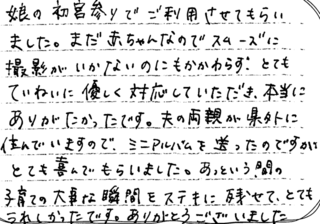 娘の初宮参りでご利用させてもらい
ました。まだ赤ちゃんなのでスムーズに
撮影がいかないのにもかかわらず、とても
ていねいに優しく対応していただき、本当に
ありがたかったです。夫の両親が県外に
住んでいますので、ミニアルバムを送ったのですがに
とても喜んでもらいました。あっという間の
子育ての大事な瞬間をステキに残せて、とても
うれしかったです。ありがとうございました